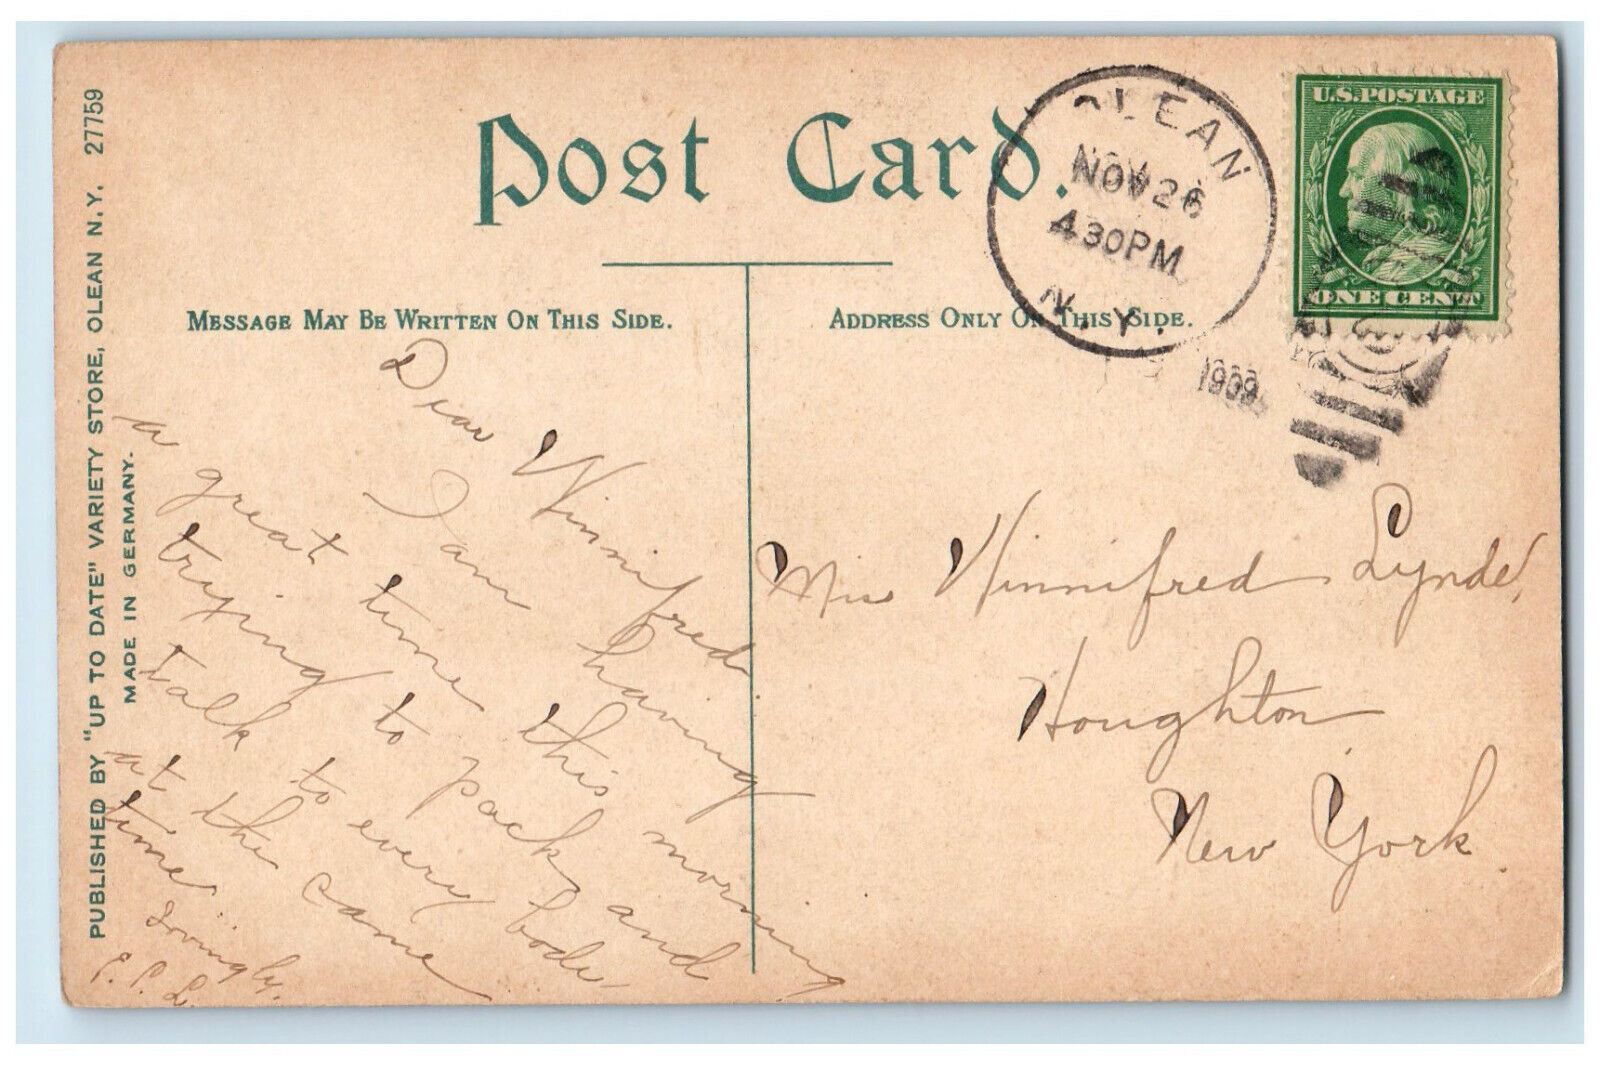 PUBLISHED BY "UP TO DATE" VARIETY STORE, OLEAN N.Y. 27759
MADE IN GERMANY.
Post Card.
MESSAGE MAY BE WRITTEN ON THIS SIDE.
ADDRESS ONLY ON THIS SIDE.
OLEAN
NOV 26
4 30PM
N.Y.
1909
U.S.POSTAGE
ONE CENT
Dear Winnifred
I am having
a great time this morning
trying to pack and
talk to every body
at the same
time
Lovingly.
E. P. L.
Miss Winnifred Lynde,
Houghton
New York